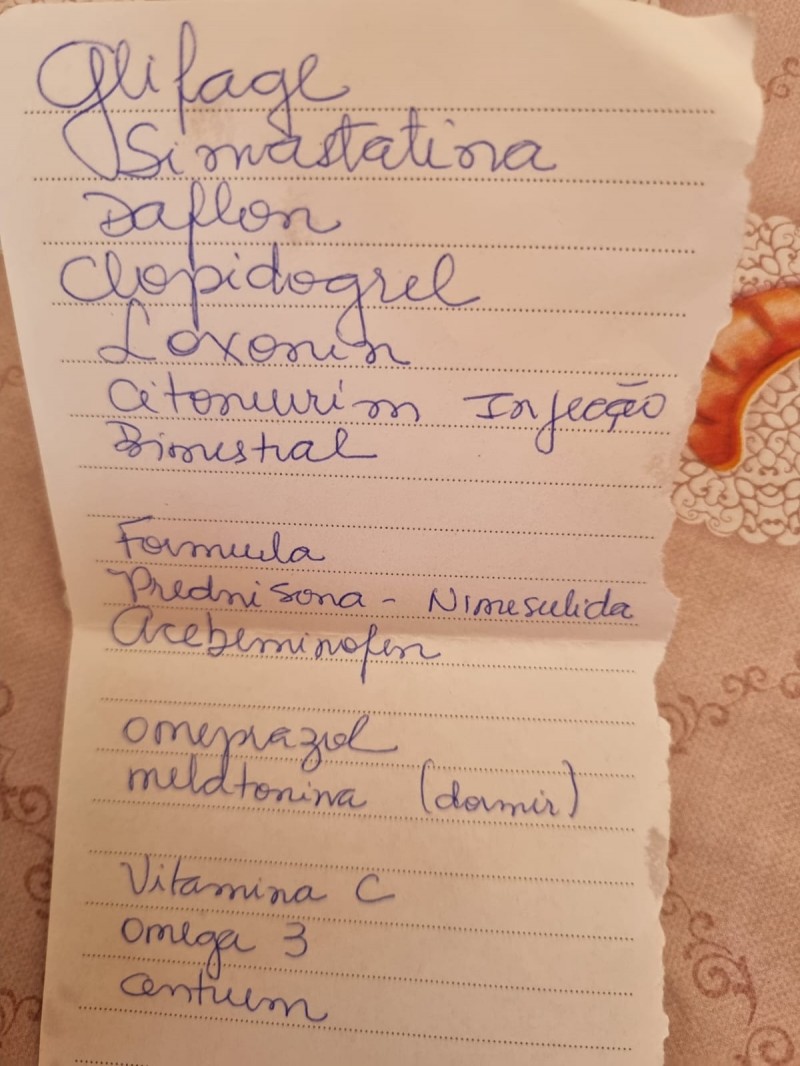 Glifage
Sinvastatina
Daflon
Clopidogrel
Loxonin
Citoneurim Injecção
Bimestral
Formula
Prednisona - Nimesulida
Acebeminofen
Omeprazol
melatonina (dormir)
Vitamina C
Omega 3
Centrum